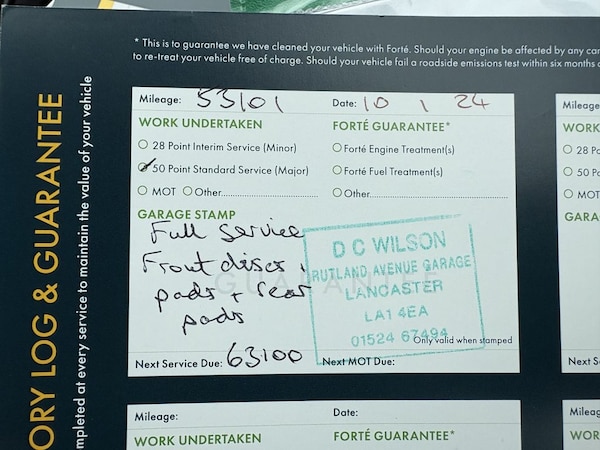 * This is to guarantee we have cleaned your vehicle with Forté. Should your engine be affected by any car
to re-treat your vehicle free of charge. Should your vehicle fail a roadside emissions test within six months
ORY LOG & GUARANTEE
mpleted at every service to maintain the value of your vehicle
Mileage: 53101 Date: 10 1 24
WORK UNDERTAKEN FORTÉ GUARANTEE*
28 Point Interim Service (Minor) Forté Engine Treatment(s)
50 Point Standard Service (Major) Forté Fuel Treatment(s)
MOT Other Other
GARAGE STAMP
Full Service
Front discs
pads + rear
pads
GUARANTEE
D C WILSON
RUTLAND AVENUE GARAGE
LANCASTER
LA1 4EA
01524 67494
Only valid when stamped
Next Service Due: 63100 Next MOT Due:
Mileage: Date:
WORK UNDERTAKEN FORTÉ GUARANTEE*
Mileage
WORK
28 Po
50 Po
MOT
GARA
Next S
Mileag
WOR